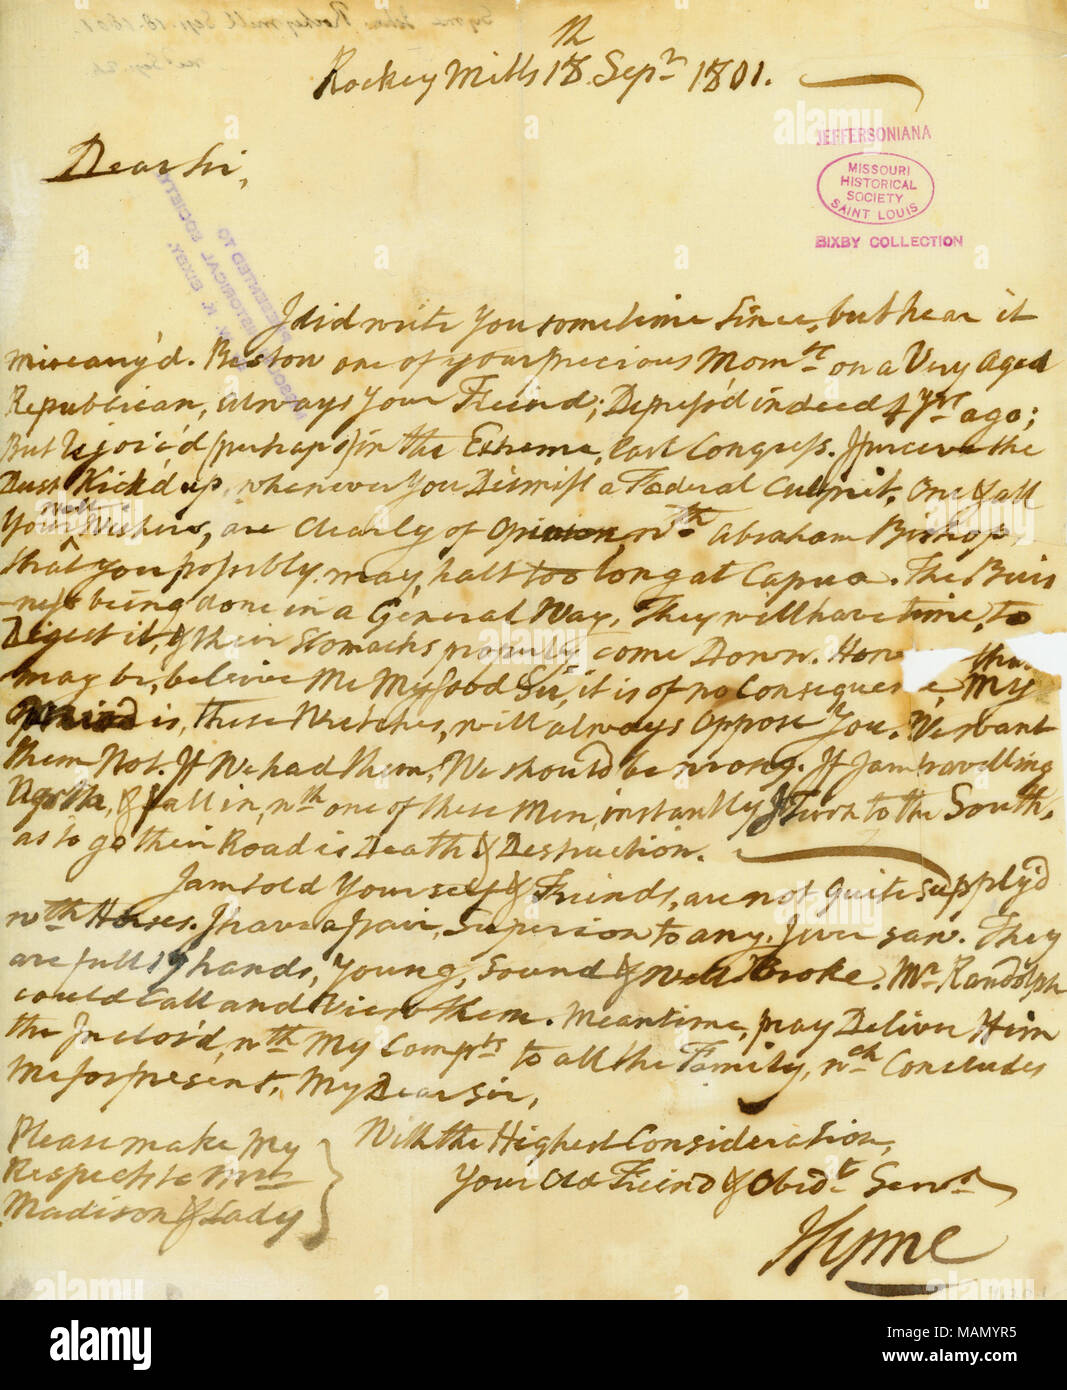 Rockey Mills 18th Sepr 1801.
JEFFERSONIANA
MISSOURI
HISTORICAL
SOCIETY
SAINT LOUIS
BIXBY COLLECTION
Dear Sir,
I did write You sometime Since, but hear it
miscarry'd. Bestow one of your precious Momts on a Very Aged
Republican, always Your Friend; Depress'd indeed 4 yrs ago;
But Rejoic'd (perhaps) in the Extreme, last Congress. I perceive the
Dust Kick'd up, whenever You Dismiss a Federal Culprit. One & all
Your Well Wishers, are Clearly of Opinion, wth Abraham Bishop,
that you possibly may, halt too long at Capua. The Busi
-ness being done in a General Way, They will have time, to
Digest it, & their Stomachs properly come Down. How
may be, believe Me My good Sir, it is of no Conseque e, My
is, these Wretches, will always oppose You. We want
them Not. If We had them, We should be wrong. If I am travelling
North, & fall in, wth one of these Men, instantly I Turn to the South,
as to go their Road is Death & Destruction.
I am told Yourself & Friends, are not quite supply'd
wth Horses. I have a pair, Superior to any I ever saw. They
are full 15 hands, Young, Sound & Well Broke. Mr. Randolph
could Call and View them. Meantime, pray Deliver Him
the Inclos'd, wth My Compts to all the Family, wch Concludes
Me for present, My Dear Sir,
With the Highest Consideration,
Your Old Friend & Obidt Servt
JSyme
Please make My
Respects to
Madison & Lady
alamy
Image ID: MAMYR5
www.alamy.com